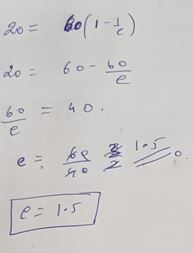 20 = 60(1 - 1/e)
20 = 60 - 60/e
60/e = 40.
e = 60/40 1.5
e = 1.5